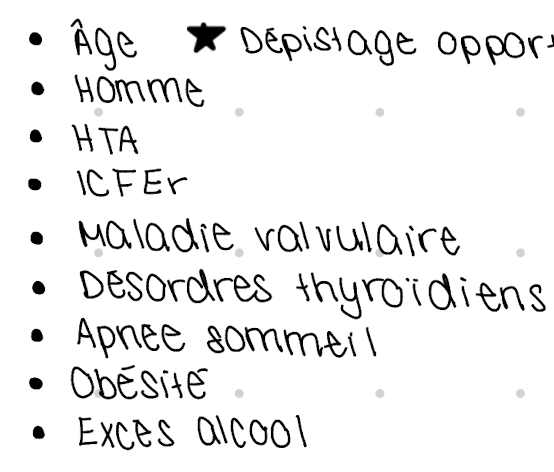 • Âge ★ Dépistage oppor
• Homme
• HTA
• ICFEr
• Maladie valvulaire
• Désordres thyroïdiens
• Apnée sommeil
• Obésité
• Excès alcool